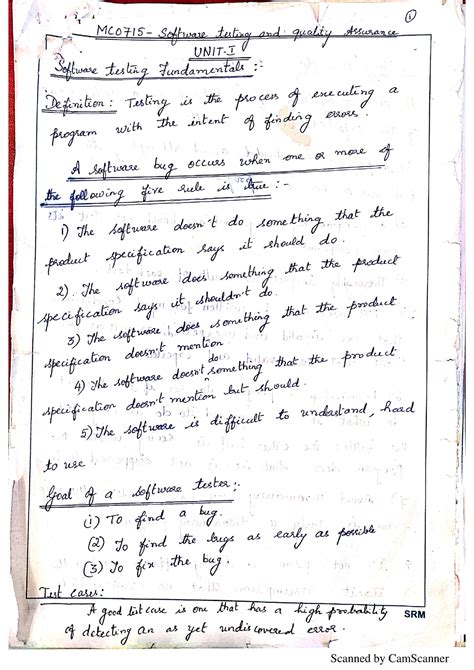 ①
MC0715 - Software testing and quality Assurance
UNIT-I
Software testing Fundamentals :-
Definition : Testing is the process of executing a
program with the intent of finding errors.
A software bug occurs when one or more of
the following five rule is true :-
1) The software doesn't do something that the
product specification says it should do.
2) The software does something that the product
specification says it shouldn't do.
3) The software does something that the product
specification doesn't mention.
4) The software doesn't do something that the product
specification doesn't mention but should.
5) The software is difficult to understand, head
to use
Goal of a software tester:-
(1) To find a bug.
(2) To find the bugs as early as possible
(3) To fix the bug.
Test cases:
A good testcase is one that has a high probability
of detecting an as yet undiscovered error.
SRM
Scanned by CamScanner